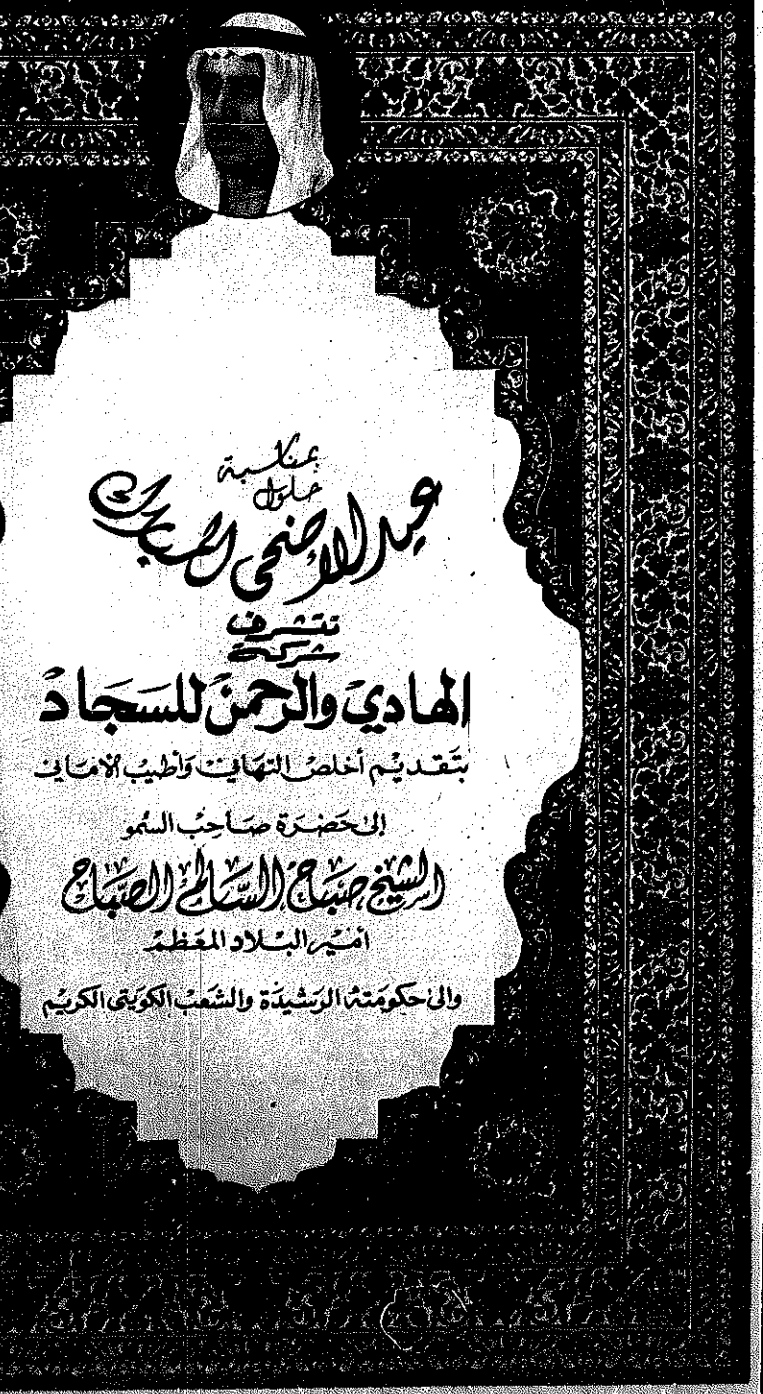 بمناسبة
حلول
عيد الاضحى المبارك
تتشرف
شركة
الهادي والرحمن للسجاد
بتقديم أخلص التهاني وأطيب الأماني
إلى حضرة صاحب السمو
الشيخ صباح السالم الصباح
أمير البلاد المعظم
والى حكومته الرشيدة والشعب الكويتي الكريم